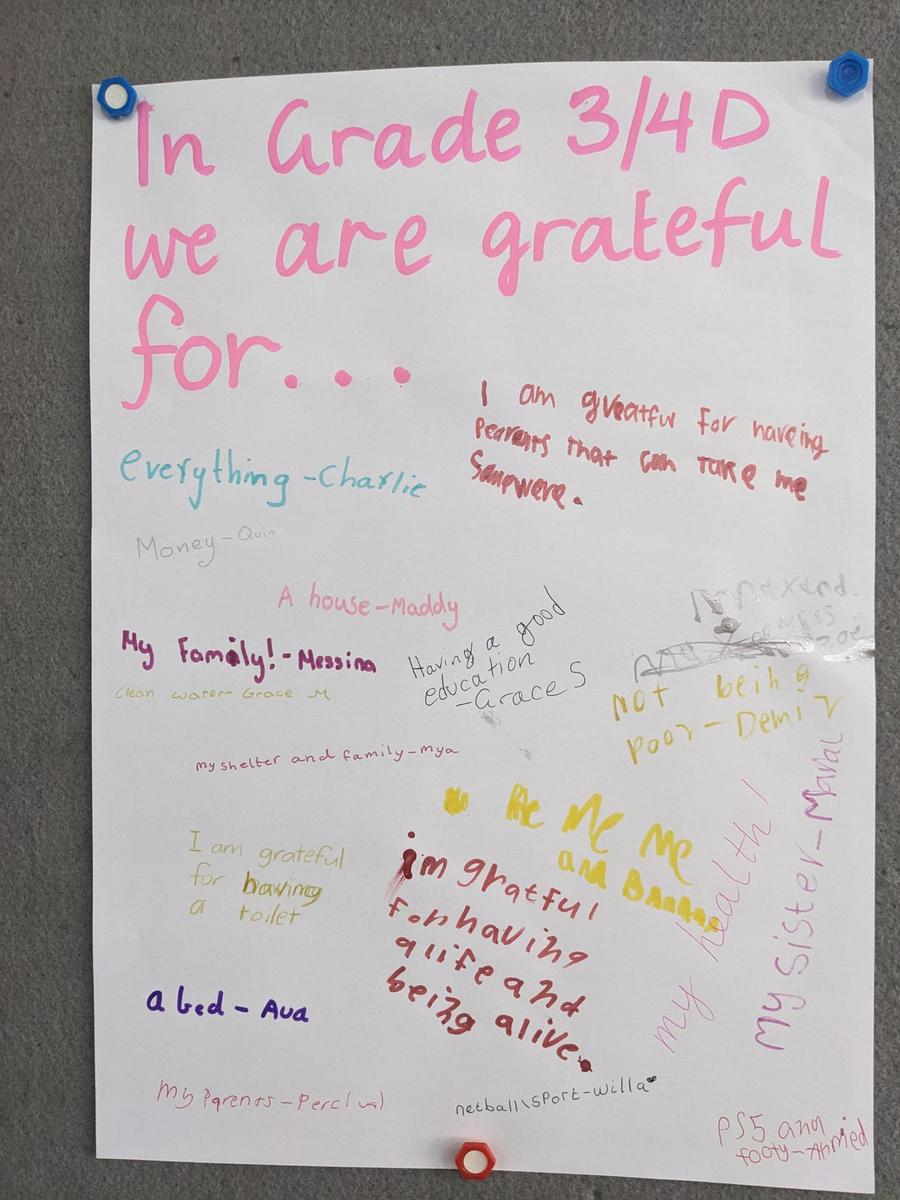 In Grade 3/4D
we are grateful
for...
I am greatful for haveing
Pearents That can Take me
Sumpwere.
everything -Charlie
Money-Quin
A house-Maddy
My Family!-Messina
Clean water-Grace M
Having a good
education
-Grace S
Not being
poor-Demir
my shelter and family-mya
Me Me Me
and
I am grateful
for having
a toilet
im gratful
for having
a life and
being alive.
my health!
My Sister-Manal
a bed - Ava
My Parents-Percival
netball\sport-willa
PS5 and
footy-Ahmed